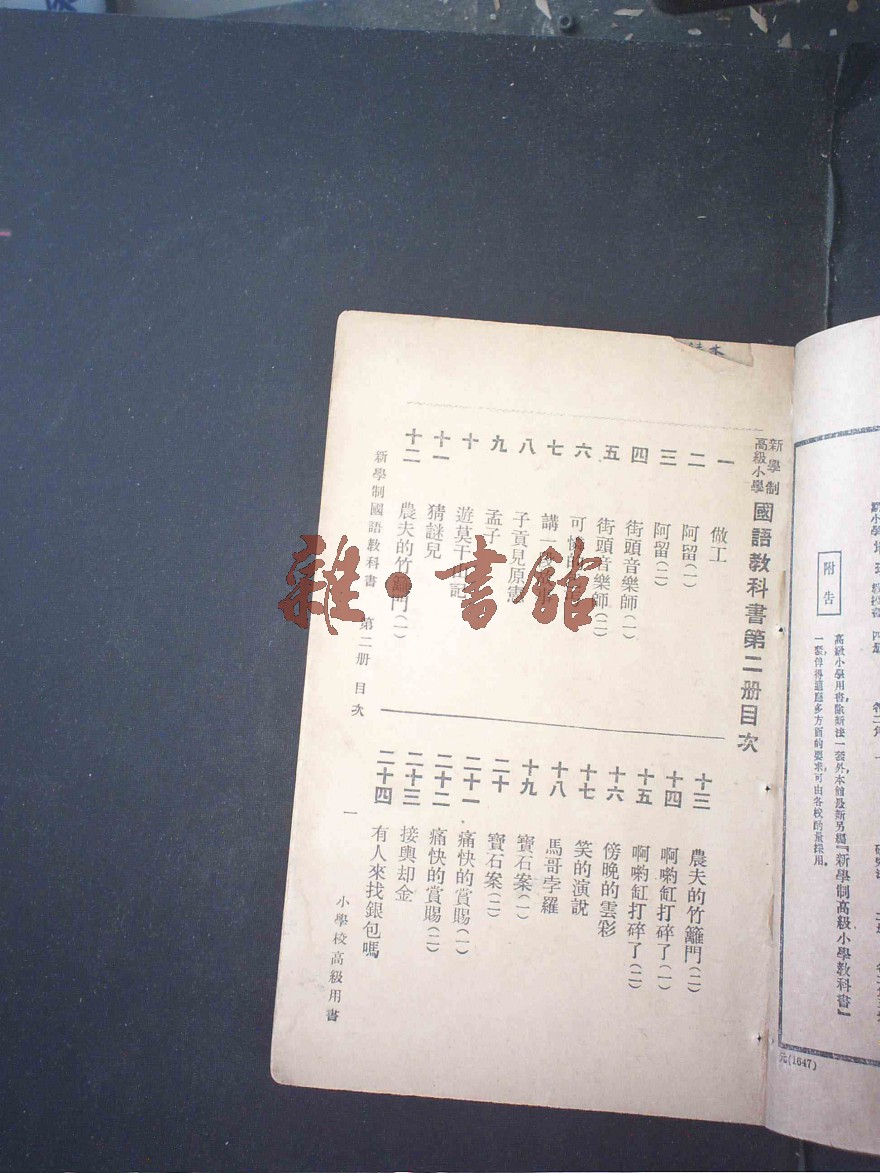 新學制
高級小學
國語教科書第二册目次
一 做工
二 阿留(一)
三 阿留(二)
四 街頭音樂師(一)
五 街頭音樂師(二)
六 可憐的
七 講一
八 子貢見原憲
九 孟子
十 遊莫干山記
十一 猜謎兒
十二 農夫的竹籬門(一)
十三 農夫的竹籬門(二)
十四 啊喲缸打碎了(一)
十五 啊喲缸打碎了(二)
十六 傍晚的雲彩
十七 笑的演說
十八 馬哥孛羅
十九 寶石案(一)
二十 寶石案(二)
二十一 痛快的賞賜(一)
二十二 痛快的賞賜(二)
二十三 接輿却金
二十四 有人來找銀包嗎
新學制國語教科書 第二册 目次
一
小學校高級用書
附告
高級小學用書,除新法一套外,本館最新另編『新學制高級小學教科書』
一套,俾得適應多方面的要求,可由各校酌量採用。
元(1647)
雜·書館